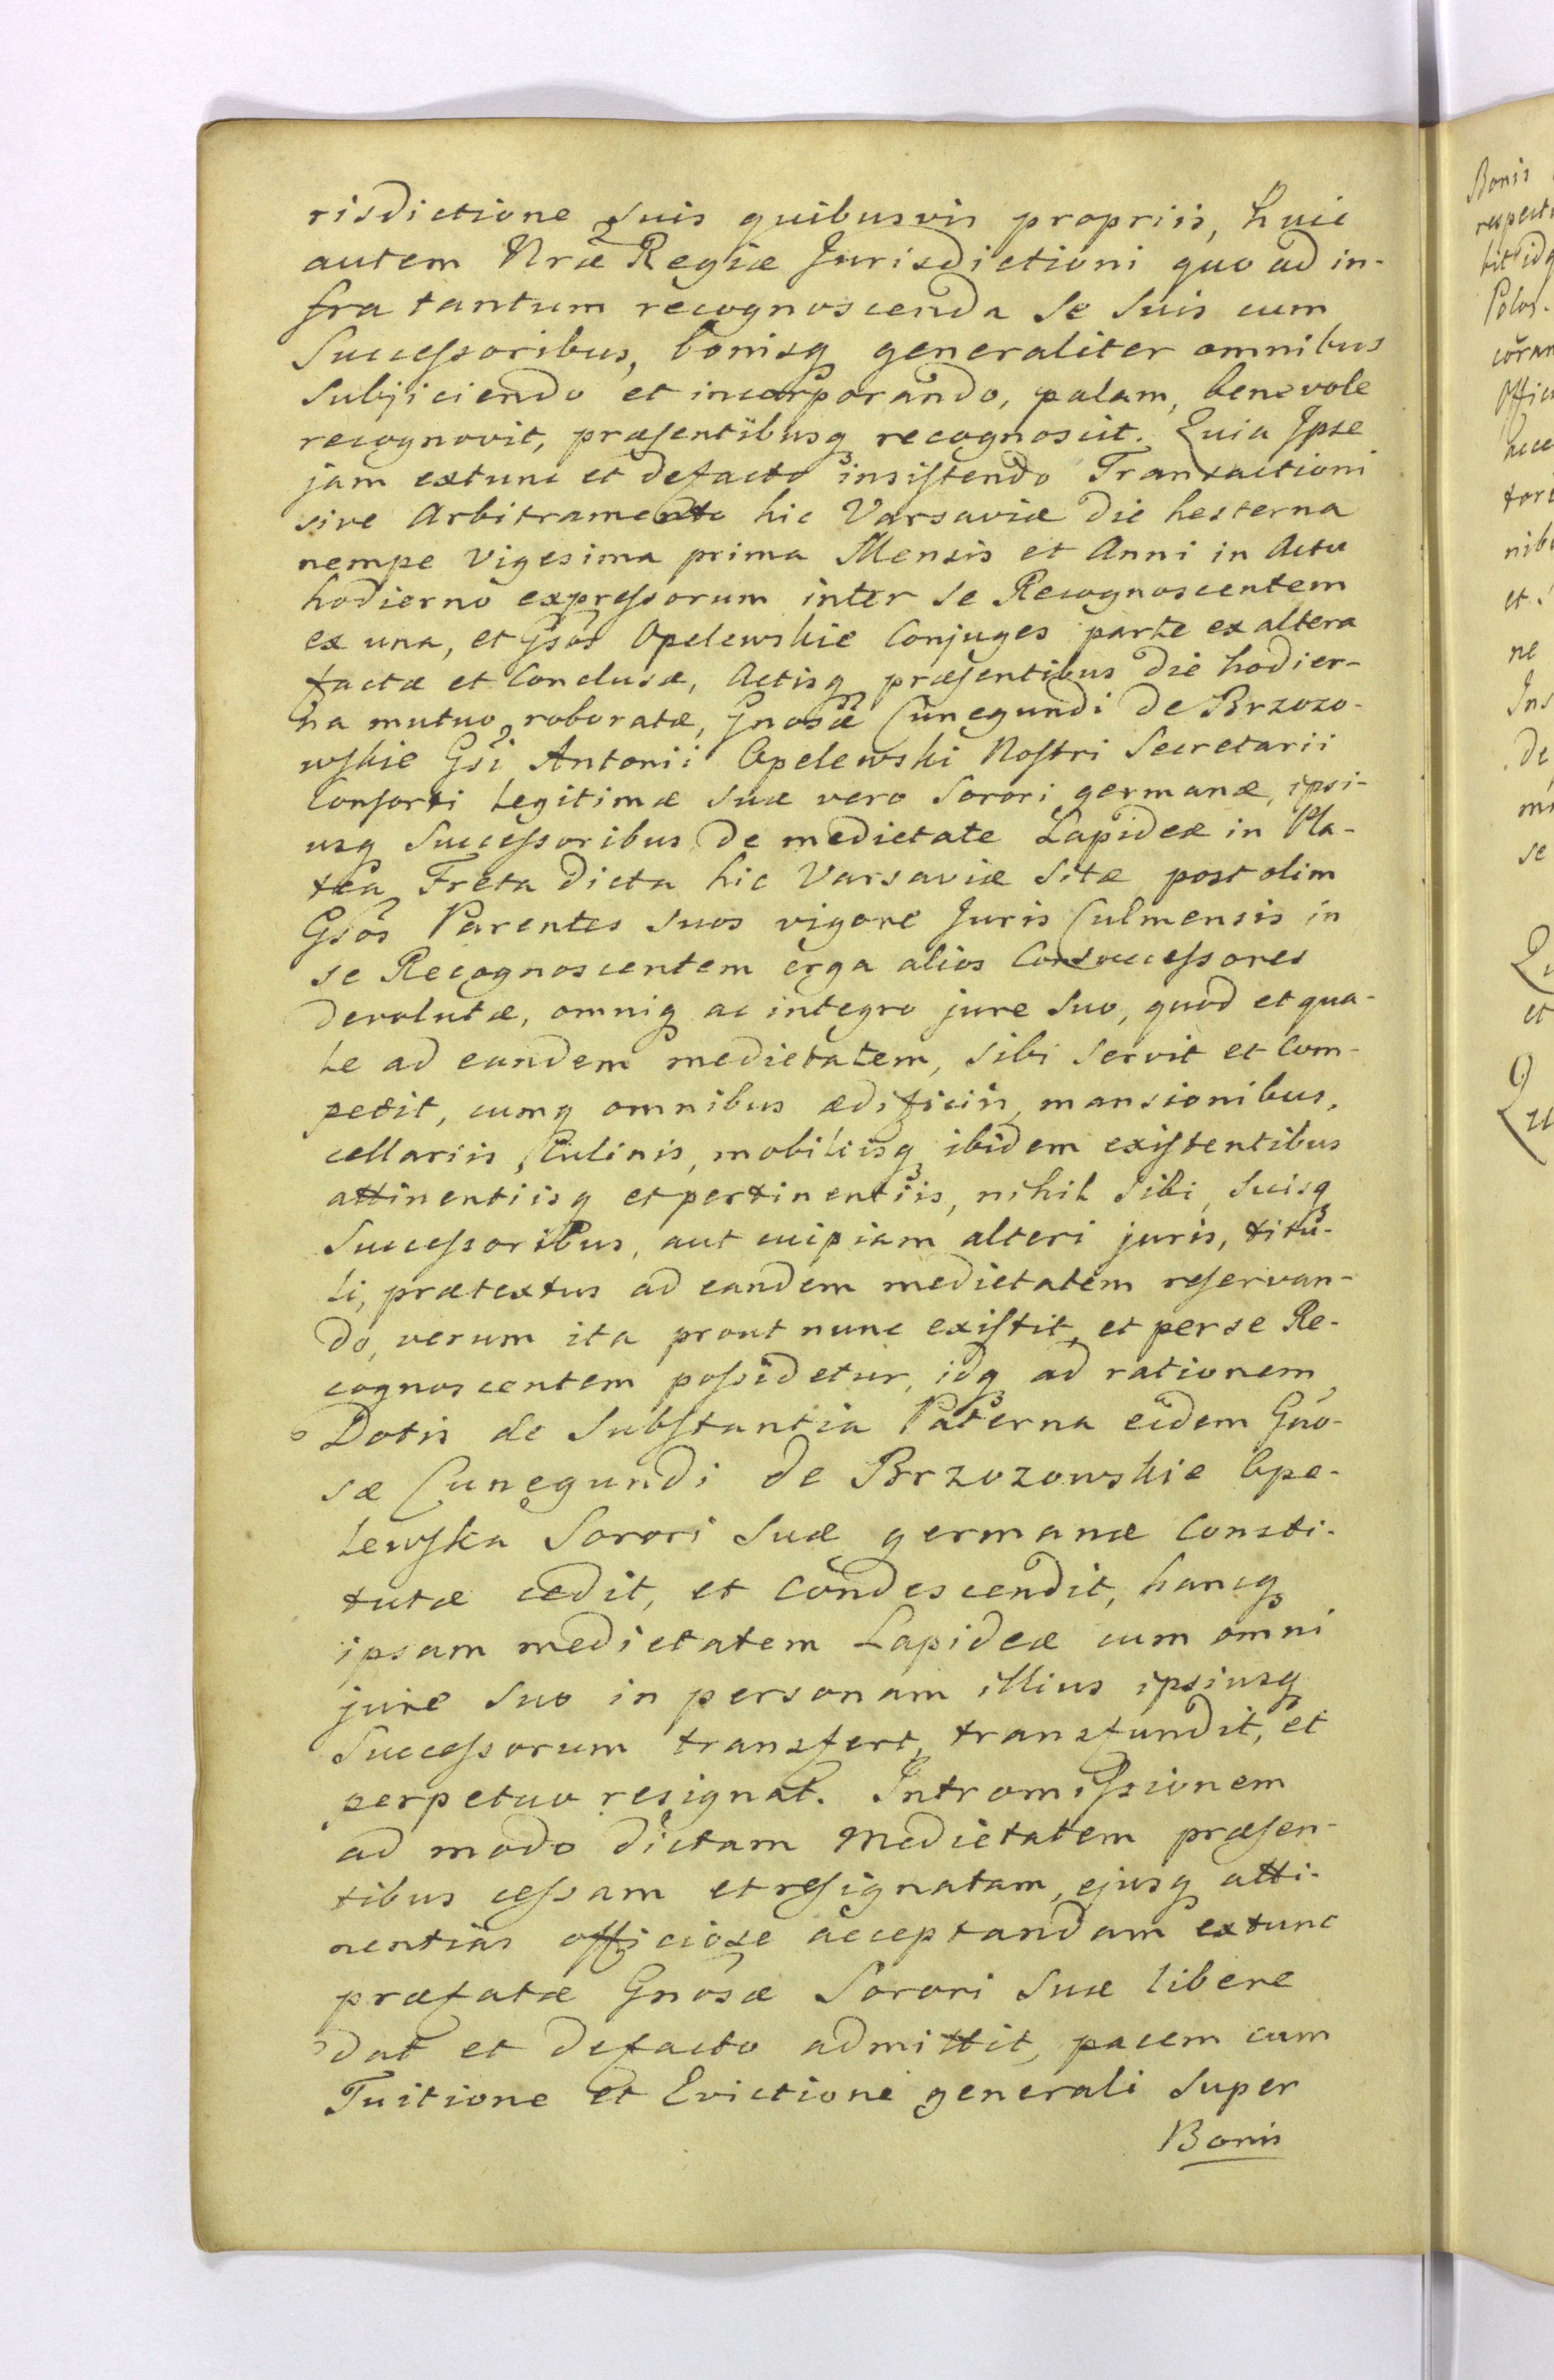 risdictione suis quibusvis propriis, huic
autem Nræ Regiæ Jurisdictioni quo ad in-
fra tantum recognoscenda se suis cum
Successoribus, bonisq generaliter omnibus
Subjiciendo et incorporando, palam, benevole
recognovit, præsentibusq recognoscit. Quia Ipse
jam extunc et defacto insistendo Transactioni
sive Arbitramento hic Varsaviæ die hesterna
nempe Vigesima prima Mensis et Anni in Actu
hodierno expressorum inter se Recognoscentem
ex una, et Gsos Opelewskie Conjuges parte ex altera
factæ et Conclusæ, Actisq præsentibus die hodier-
na mutuo roboratæ, Gnosæ Cunegundi de Brzozo-
wskie Gsi Antonii Opelewski Nostri Secretarii
Consorti Legitimæ suæ vero Sorori germanæ, ipsi-
usq Successoribus de medietate Lapideæ in Pla-
tea Freta dicta hic Varsaviæ sitæ post olim
Gsos Parentes suos vigore Juris Culmensis in
se Recognoscentem erga alios Consuccessores
devolutæ, omniq ac integro jure suo, quod et qua-
le ad eandem medietatem, sibi servit et Com-
petit, cumq omnibus ædificiis, mansionibus,
cellariis, Culinis, mobiliisq ibidem existentibus
attinentiisq et pertinentiis, nihil sibi, suisq
Successoribus, aut cuipiam alteri juris, titu-
li, prætextus ad eandem medietatem reservan-
do, verum ita prout nunc existit, et per se Re-
cognoscentem possidetur, idq ad rationem
Dotis de Substantia Paterna eidem Gno-
sæ Cunegundi de Brzozowskie Ope-
lewska Sorori suæ germanæ Consti-
tutæ cedit, et Condescendit, hancq
ipsam medietatem Lapideæ cum omni
jure suo in personam illius ipsiusq
Successorum transfert, transfundit, et
perpetuo resignat. Intromissionem
ad modo dictam Medietatem præsen-
tibus cessam et resignatam, ejusq atti-
nentias officiose acceptandam extunc
præfatæ Gnosæ Sorori suæ libere
dat et defacto admittit, pacem cum
Tuitione et Evictione generali super
Bonis